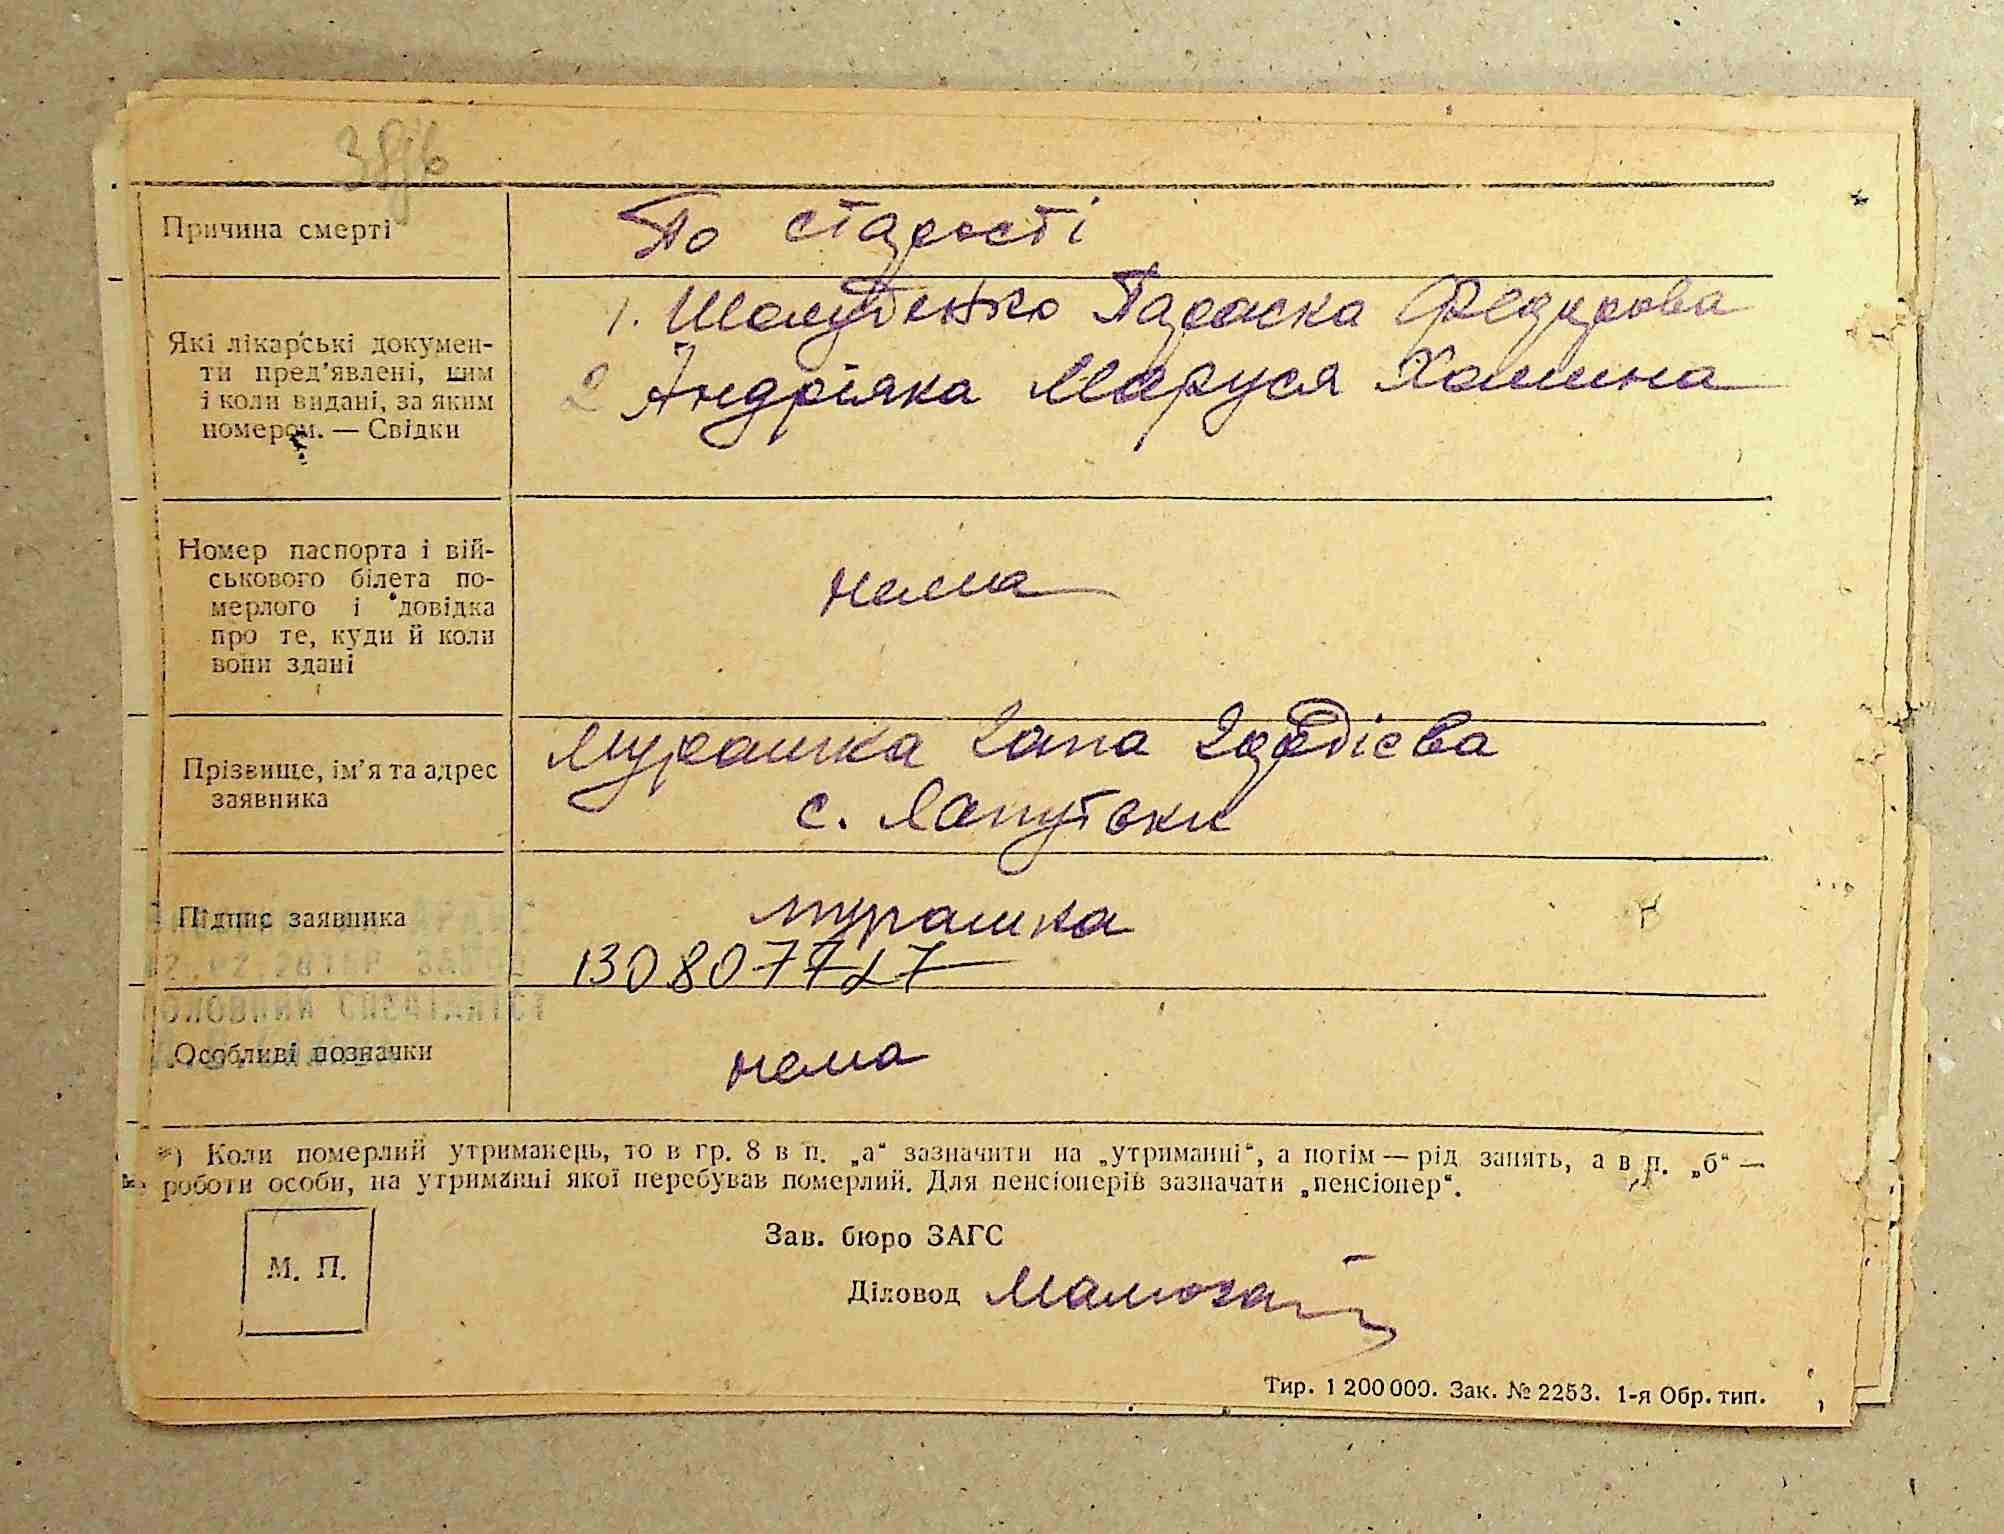 Причина смерті
По старості
Які лікарські докумен-
ти пред'явлені, ким
і коли видані, за яким
номером. — Свідки
1. Шолуденко Параска Федурова
2 Андріяка Маруся Хомина
Номер паспорта і вій-
ськового білета по-
мерлого і довідка
про те, куди й коли
вони здані
нема
Прізвище, ім'я та адрес
заявника
Мурашка Гапа
с. Лапутьки
Підпис заявника
мурашка
Особливі позначки
нема
*) Коли померлий утриманець, то в гр. 8 в п. „а“ зазначити на „утриманні“, а потім — рід занять, а в п. „б“ —
роботи особи, на утриманні якої перебував померлий. Для пенсіонерів зазначати „пенсіонер“.
М. П.
Зав. бюро ЗАГС
Діловод
Тир. 1 200 000. Зак. № 2253. 1-я Обр. тип.